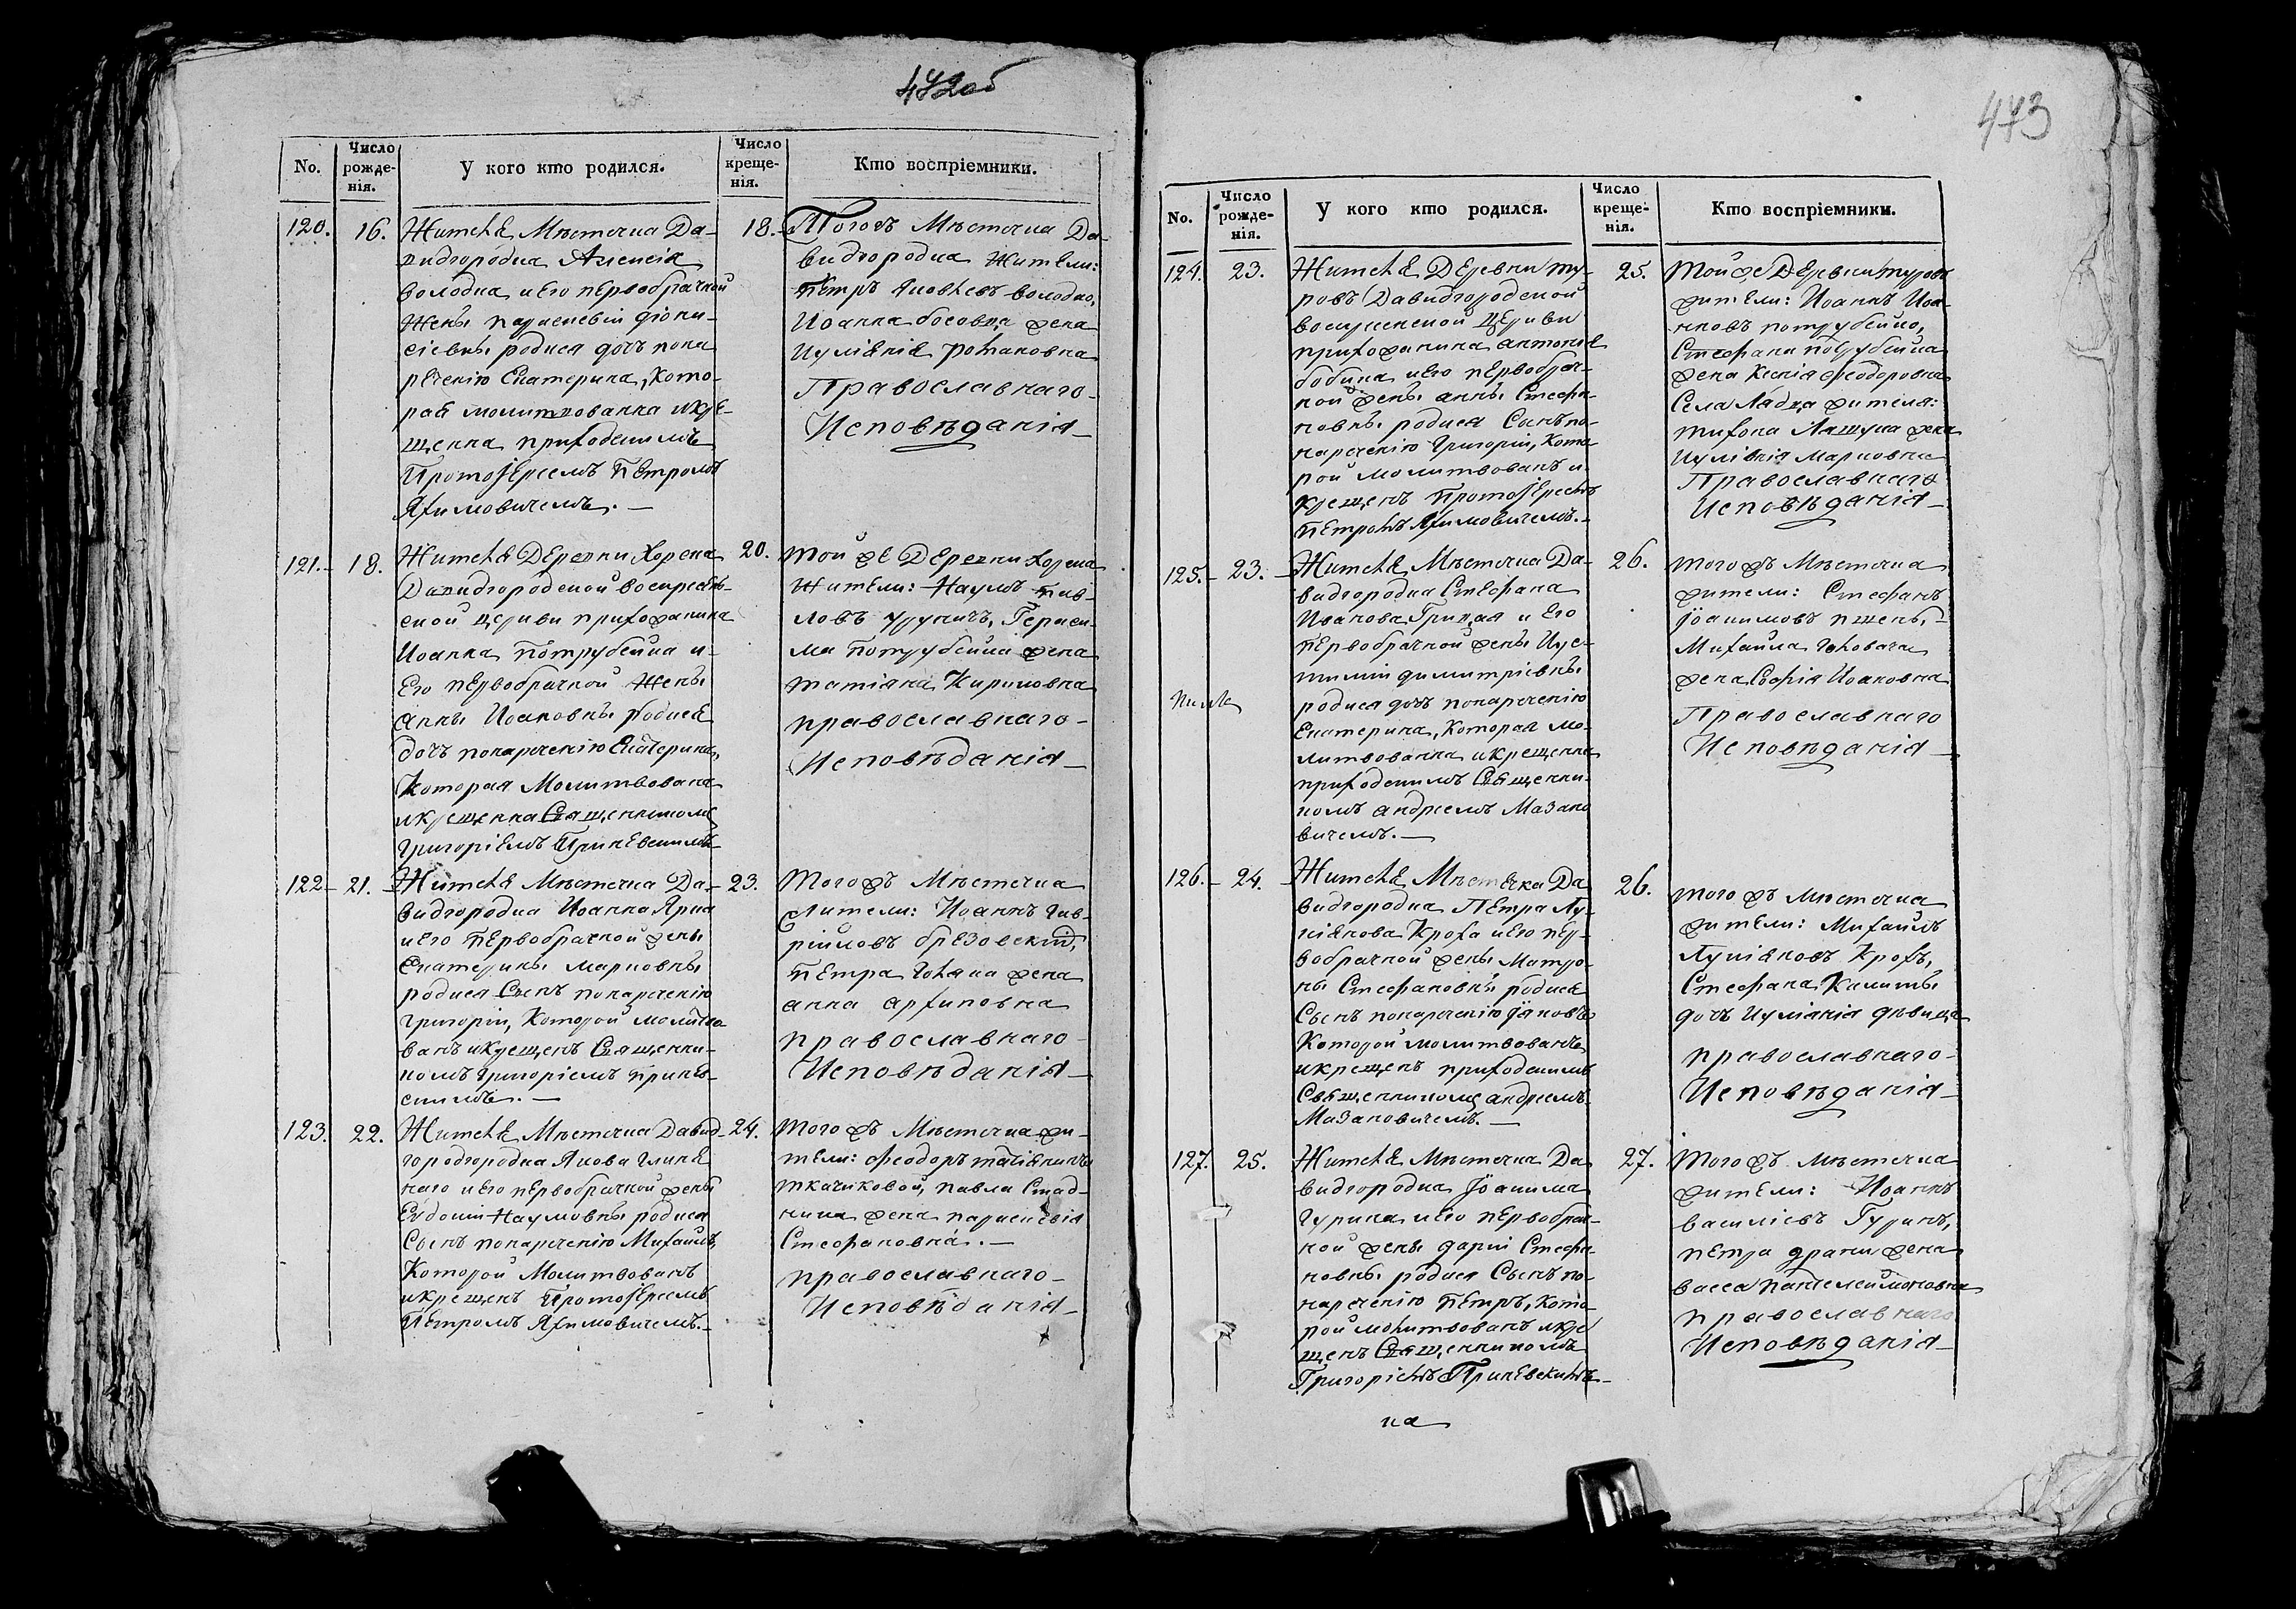 472об
No.
Число рожде- нія.
У кого кто родился.
Число креще- нія.
Кто воспріемники.
120.
16.
Жителя Мѣстечка Да-
видгородка Алексія
Володка и Его первобрачной
жены Параскевіи Діони-
сіевны родися дочь пона
реченію Екатерина, Кото-
рая молитвованна и кре-
щенна приходскимъ
Протоіереемъ Петромъ
Яхимовичемъ. —
18.
Тогожъ Мѣстечка Да-
видгородка Жители:
Петръ Яковлевъ Володко,
Иоанна
жена
Иуліанія Романовна
Православнаго
Исповѣданія
121.
18.
Жителя Деревни Хорска
Давидгородской Воскресен-
ской церкви прихожанина
Иоанна Потрубейка и
Его первобрачной жены
Анны Иоановны родися
дочь понареченію Екатерина,
которая Молитвована
и крещенна Священникомъ
Григоріемъ
20.
той же Деревни Хорска
Жители: Наумъ Пав-
ловъ
Гераси-
ма Потрубейка жена
Татіана Кириловна
православнаго
Исповѣданія
122
21.
Жителя Мѣстечка Да-
видгородка Иоанна
и Его Первобрачной жены
Екатерины Марковны
родися Сынъ понареченію
Григорій, Которой молитво
ванъ и крещенъ Священни-
комъ Григоріемъ
23.
Тогожъ Мѣстечка
Жители: Иоаннъ Гав-
рійловъ Брезовскій,
Петра
жена
Анна Архиповна
православнаго
Исповѣданія
123.
22.
Жителя Мѣстечка Давид-
городгородка Якова Глинс
каго и Его первобрачной жены
Евдокіи Наумовны родися
Сынъ понареченію Михаилъ,
Которой Молитвованъ
и крещенъ Протоіереемъ
Петромъ Яхимовичемъ.
24.
Тогожъ Мѣстечка жи-
тели: Феодоръ
Павла Стад-
ника жена Параскевія
Стефановна. —
православнаго
Исповѣданія
473
No.
Число рожде- нія.
У кого кто родился.
Число креще- нія.
Кто воспріемники.
124.
23.
Жителя Деревни Ту-
ровъ Давидгородской
Воскресенской Церкви
прихожанина Антонія
Бобика и его первобрач-
ной жены Анны Стефа-
новны родися Сынъ по-
нареченію Григорій, Кото
рой Молитвованъ и
Крещенъ Протоіереемъ
Петромъ Яхимовичемъ.
25.
Той же Деревни Туровъ
жители: Иоаннъ Иоа-
нновъ Потрубейко,
Стефана Потрубейка
жена Ксенія Феодоровна
Села Лядца жителя:
Тихона Ляшука жена
Иуліанія Марковна
Православнаго
Исповѣданія
125.
23.
Жителя Мѣстечка Да-
видгородка Стефана
Иоанова Грицая и Его
Первобрачной жены Иус-
тиніи Димитріевны
родися дочь понареченію
Екатерина, Которая мо-
литвованна и крещенна
приходскимъ Священни-
комъ Андреемъ Мазано
вичемъ. —
26.
тогожъ Мѣстечка
жители: Стефанъ
Іоакимовъ
Михаила
жена Софія Иоановна
Православнаго
Исповѣданія
126.
24.
Жителя Мѣстечка Да
видгородка Петра Лу-
кіянова Кроха и его пер-
вобрачной жены Матро-
ны Стефановны родися
Сынъ понареченію Іаковъ
Которой молитвованъ
и крещенъ приходскимъ
Священникомъ Андреемъ
Мазановичемъ. —
26.
тогожъ Мѣстечка
жители: Михаилъ
Лукіяновъ Крохъ,
Стефана Калиты
дочь Иуліанія дѣвица
православнаго
Исповѣданія
127.
25.
Жителя Мѣстечка Да
видгородка Іоакима
Гурина и его первобрач-
ной жены Даріи Стефа-
новны родися Сынъ по-
нареченію Петръ, Кото-
рой молитвованъ и кре
щенъ Священникомъ
Григоріемъ
на
27.
Тогожъ Мѣстечка
жители: Иоаннъ
Василіевъ Гуринъ,
Петра
жена
Васса Пантелеймоновна
православнаго
Исповѣданія